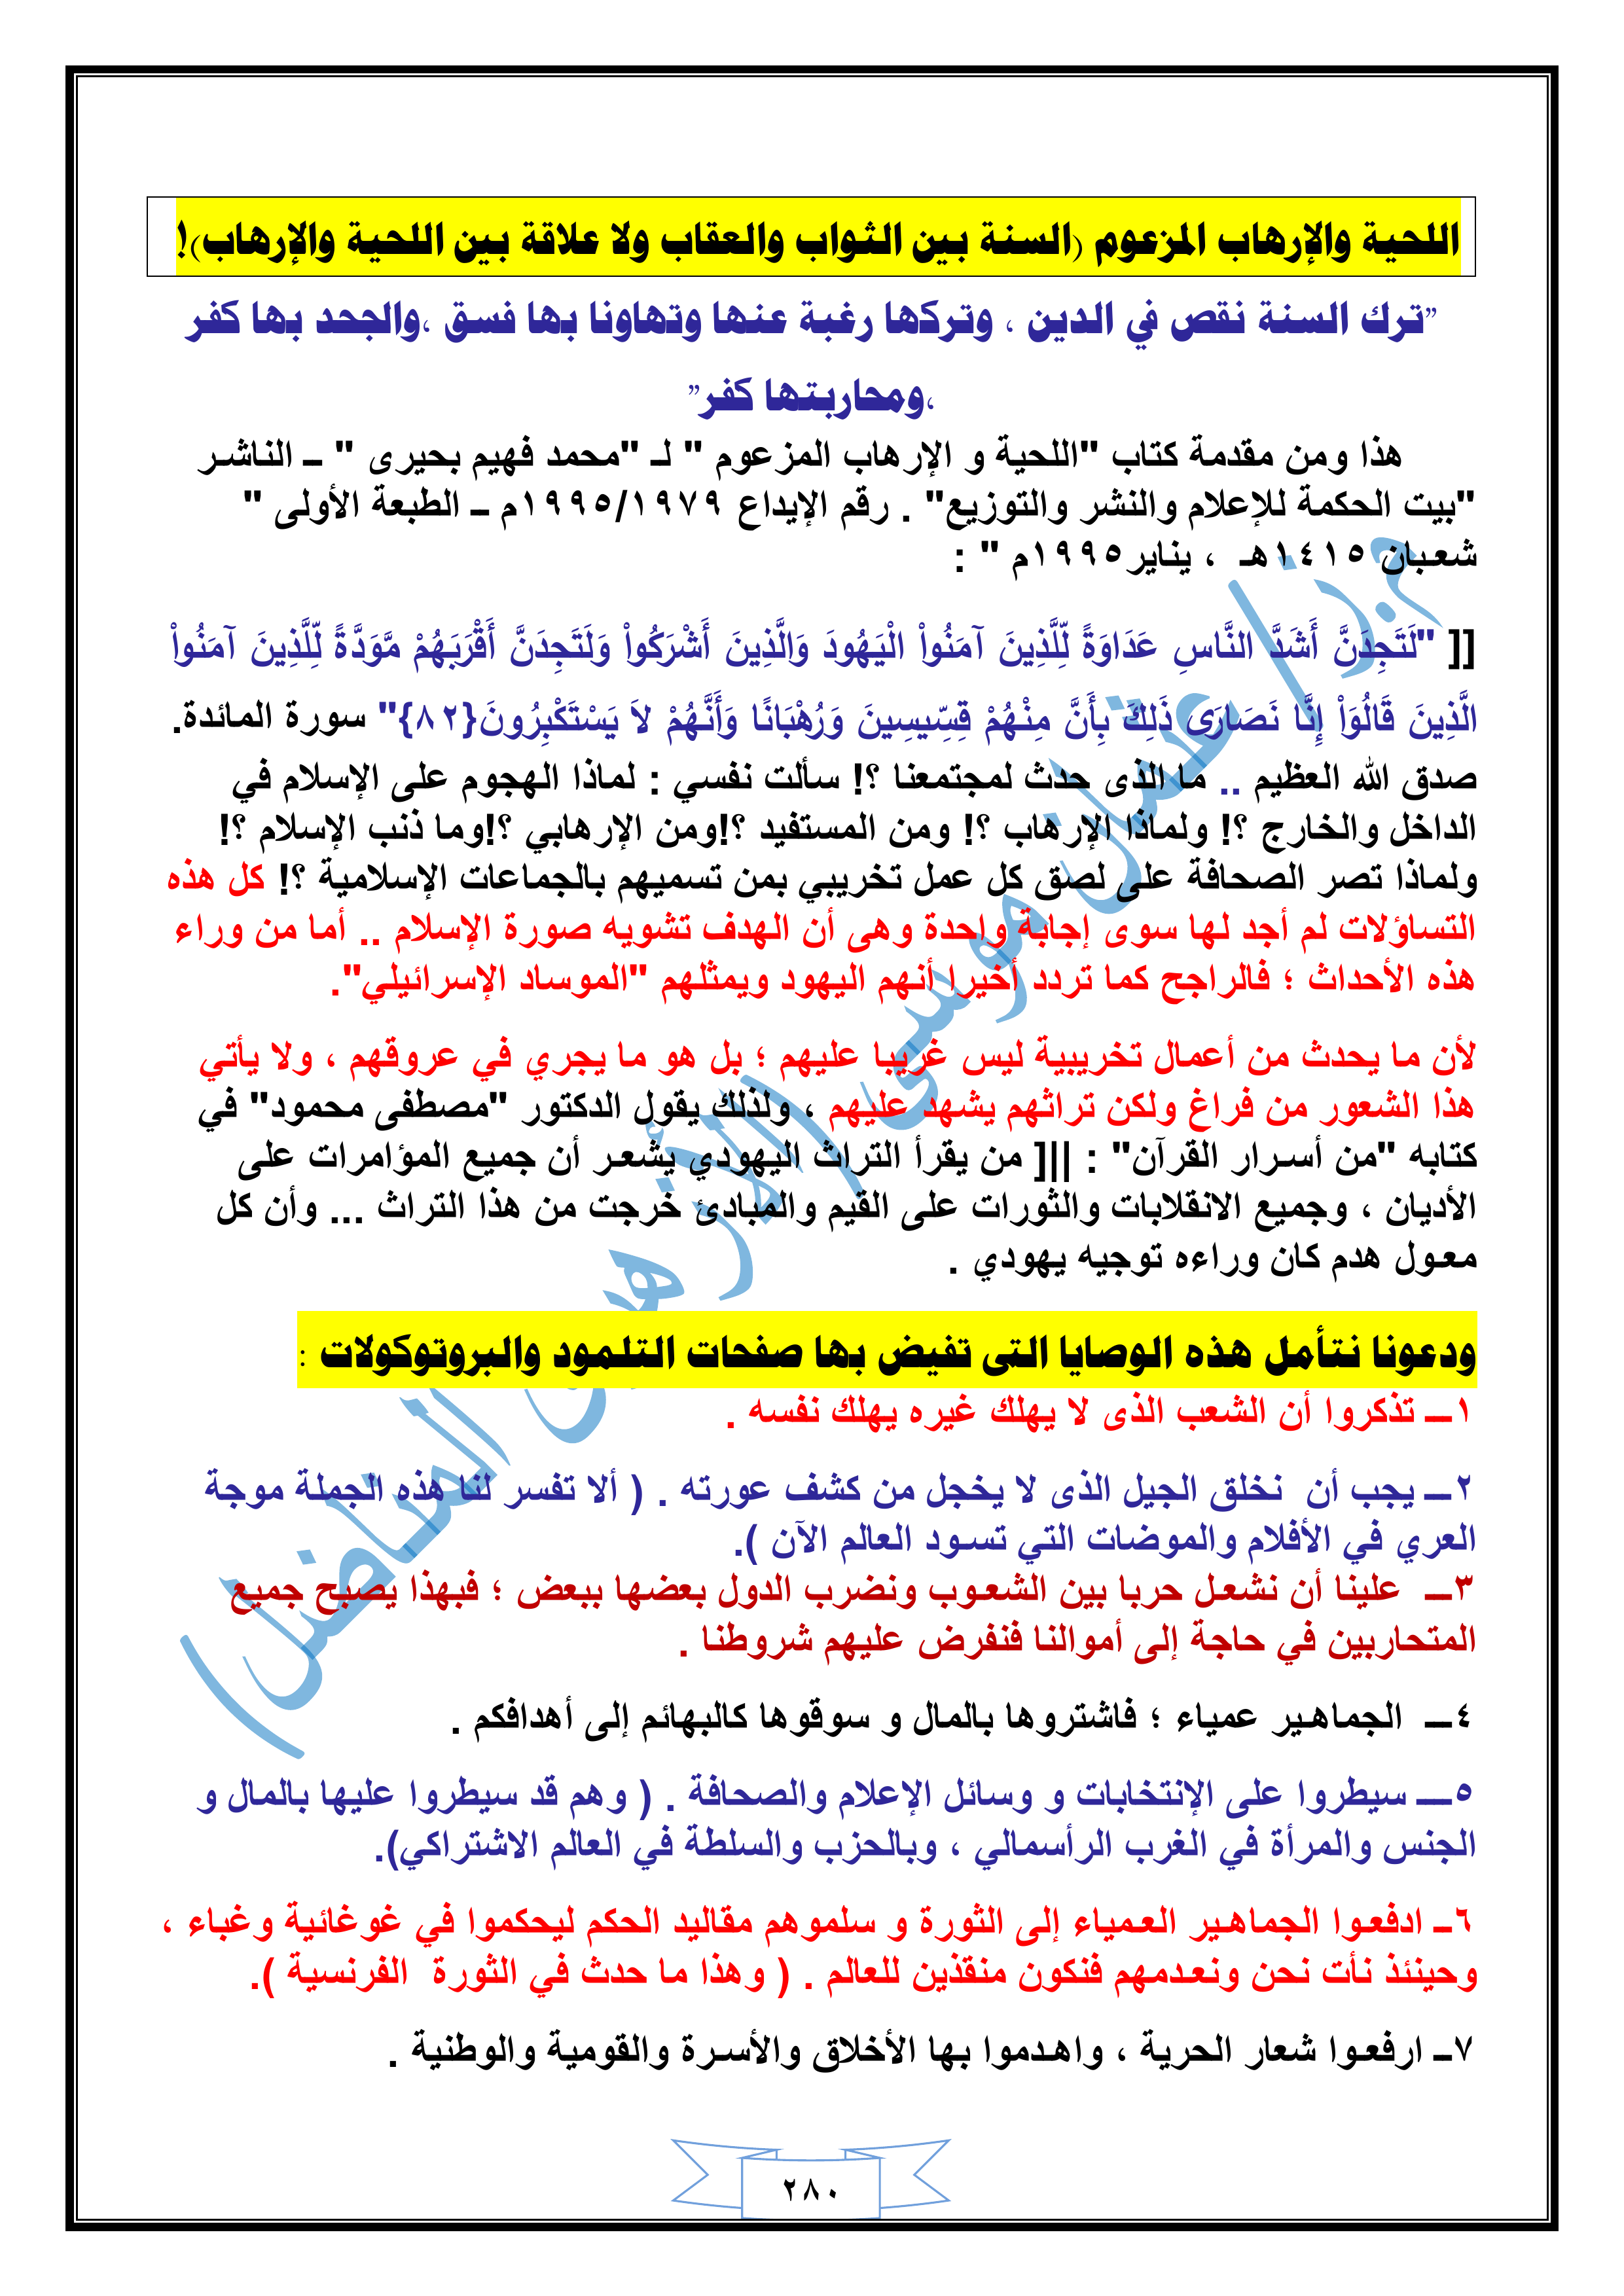 اللحية والإرهاب المزعوم (السنة بين الثواب والعقاب ولا علاقة بين اللحية والإرهاب)!
"ترك السنة نقص في الدين ، وتركها رغبة عنها وتهاونا بها فسق ،والجحد بها كفر
،ومحاربتها كفر"
هذا ومن مقدمة كتاب "اللحية و الإرهاب المزعوم " لـ "محمد فهيم بحيرى " ــ الناشر
"بيت الحكمة للإعلام والنشر والتوزيع" . رقم الإيداع ١٩٩٥/١٩٧٩م ــ الطبعة الأولى "
شعبان ١٤١٥هـ ، يناير١٩٩٥م " :
[[ "لَتَجِدَنَّ أَشَدَّ النَّاسِ عَدَاوَةً لِّلَّذِينَ آمَنُواْ الْيَهُودَ وَالَّذِينَ أَشْرَكُواْ وَلَتَجِدَنَّ أَقْرَبَهُمْ مَّوَدَّةً لِّلَّذِينَ آمَنُواْ
الَّذِينَ قَالُوَاْ إِنَّا نَصَارَى ذَلِكَ بِأَنَّ مِنْهُمْ قِسِّيسِينَ وَرُهْبَانًا وَأَنَّهُمْ لاَ يَسْتَكْبِرُونَ{٨٢}" سورة المائدة.
صدق الله العظيم .. ما الذى حدث لمجتمعنا ؟! سألت نفسي : لماذا الهجوم على الإسلام في
الداخل والخارج ؟! ولماذا الإرهاب ؟! ومن المستفيد ؟!ومن الإرهابي ؟!وما ذنب الإسلام ؟!
ولماذا تصر الصحافة على لصق كل عمل تخريبي بمن تسميهم بالجماعات الإسلامية ؟! كل هذه
التساؤلات لم أجد لها سوى إجابة واحدة وهى أن الهدف تشويه صورة الإسلام .. أما من وراء
هذه الأحداث ؛ فالراجح كما تردد أخيرا أنهم اليهود ويمثلهم "الموساد الإسرائيلي".
لأن ما يحدث من أعمال تخريبية ليس غريبا عليهم ؛ بل هو ما يجري في عروقهم ، ولا يأتي
هذا الشعور من فراغ ولكن تراثهم يشهد عليهم ، ولذلك يقول الدكتور "مصطفى محمود" في
كتابه "من أسرار القرآن" : ||[ من يقرأ التراث اليهودي يشعر أن جميع المؤامرات على
الأديان ، وجميع الانقلابات والثورات على القيم والمبادئ خرجت من هذا التراث ... وأن كل
معول هدم كان وراءه توجيه يهودي .
ودعونا نتأمل هذه الوصايا التى تفيض بها صفحات التلمود والبروتوكولات :
١ــ تذكروا أن الشعب الذى لا يهلك غيره يهلك نفسه .
٢ــ يجب أن نخلق الجيل الذى لا يخجل من كشف عورته . ( ألا تفسر لنا هذه الجملة موجة
العري في الأفلام والموضات التي تسود العالم الآن ).
٣ــ علينا أن نشعل حربا بين الشعوب ونضرب الدول بعضها ببعض ؛ فبهذا يصبح جميع
المتحاربين في حاجة إلى أموالنا فنفرض عليهم شروطنا .
٤ــ الجماهير عمياء ؛ فاشتروها بالمال و سوقوها كالبهائم إلى أهدافكم .
٥ــ سيطروا على الإنتخابات و وسائل الإعلام والصحافة . ( وهم قد سيطروا عليها بالمال و
الجنس والمرأة في الغرب الرأسمالي ، وبالحزب والسلطة في العالم الاشتراكي).
٦ــ ادفعوا الجماهير العمياء إلى الثورة و سلموهم مقاليد الحكم ليحكموا في غوغائية وغباء ،
وحينئذ نأت نحن ونعدمهم فنكون منقذين للعالم . ( وهذا ما حدث في الثورة الفرنسية ).
٧ــ ارفعوا شعار الحرية ، واهدموا بها الأخلاق والأسرة والقومية والوطنية .
٢٨٠